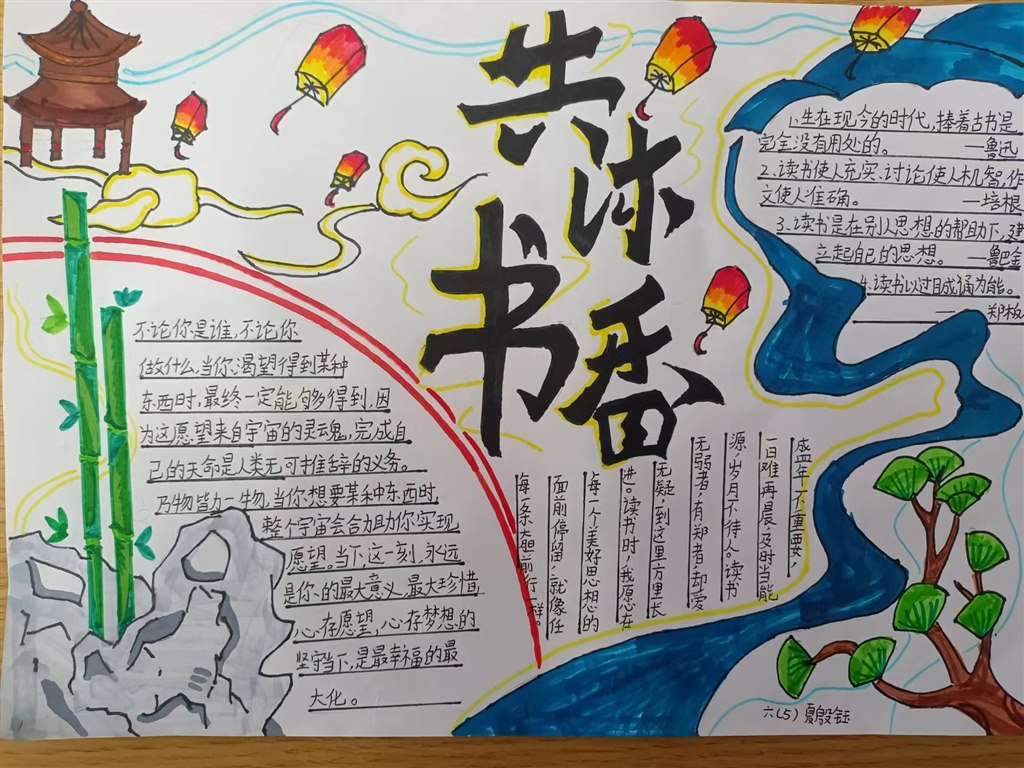 共沐
书香
1.生在现今的时代,捧着古书是
完全没有用处的。 —鲁迅
2.读书使人充实.讨论使人机智,作
文使人准确。 —培根
3.读书是在别人思想的帮助下,建
立起自己的思想。 —鲁巴金
4.读书以过目成诵为能。
— 郑板
不论你是谁,不论你
做什么,当你渴望得到某种
东西时,最终一定能够得到,因
为这愿望来自宇宙的灵魂,完成自
己的天命是人类无可推辞的义务。
万物皆为一物,当你想要某种东西时,
整个宇宙会合力助你实现
愿望。当下这一刻,永远
是你的最大意义,最大珍惜,
心存愿望,心存梦想的
坚守当下,是最幸福的最
大化。
盛年不重要,
一日难再晨.及时当能
源,岁月不待人.读书
无弱者,有知者却爱
无疑,到这里方里长
进。读书时,我愿意在
每一个美好思想的
面前停留,就像任
每一条大胆前行一样。
六(5) 夏殷钰